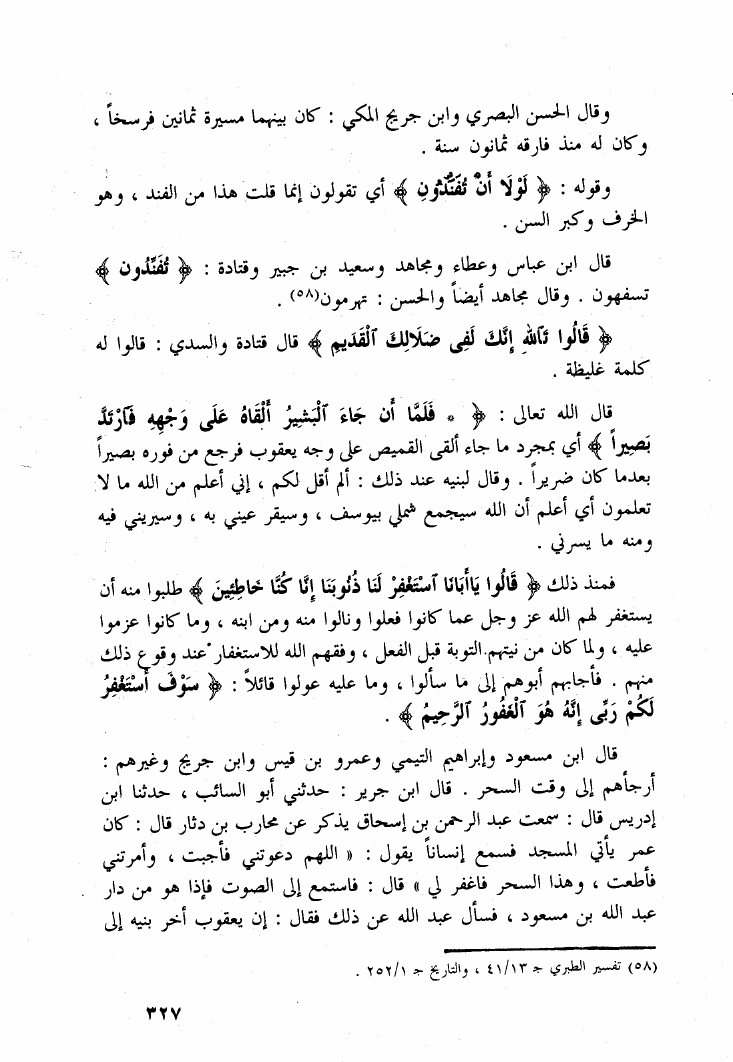 وقال الحسن البصري وابن جريج المكي : كان بينهما مسيرة ثمانين فرسخاً ،
وكان له منذ فارقه ثمانون سنة .
وقوله : ﴿ لَوْلَا أَنْ تُفَنِّدُونِ ﴾ أي تقولون إنما قلت هذا من الفند ، وهو
الخرف وكبر السن .
قال ابن عباس وعطاء ومجاهد وسعيد بن جبير وقتادة : ﴿ تُفَنِّدُون ﴾
تسفهون . وقال مجاهد أيضاً والحسن : تهرمون(٥٨) .
﴿ قَالُوا تَاللهِ إِنَّكَ لَفِى ضَلَالِكَ ٱلْقَدِيمِ ﴾ قال قتادة والسدي : قالوا له
كلمة غليظة .
قال الله تعالى : ﴿ * فَلَمَّا أَن جَاءَ ٱلْبَشِيرُ أَلْقَاهُ عَلَى وَجْهِهِ فَٱرْتَدَّ
بَصِيراً ﴾ أي بمجرد ما جاء ألقى القميص على وجه يعقوب فرجع من فوره بصيراً
بعدما كان ضريراً . وقال لبنيه عند ذلك : ألم أقل لكم ، إني أعلم من الله ما لا
تعلمون أي أعلم أن الله سيجمع شملي بيوسف ، وسيقر عيني به ، وسيريني فيه
ومنه ما يسرني .
فمنذ ذلك ﴿ قَالُوا يَاأَبَانَا ٱسْتَغْفِرْ لَنَا ذُنُوبَنَا إِنَّا كُنَّا خَاطِئِينَ ﴾ طلبوا منه أن
يستغفر لهم الله عز وجل عما كانوا فعلوا ونالوا منه ومن ابنه ، وما كانوا عزموا
عليه ، ولما كان من نيتهم التوبة قبل الفعل ، وفقهم الله للاستغفار عند وقوع ذلك
منهم . فأجابهم أبوهم إلى ما سألوا ، وما عليه عولوا قائلاً : ﴿ سَوْفَ أَسْتَغْفِرُ
لَكُمْ رَبِّى إِنَّهُ هُوَ ٱلْغَفُورُ ٱلرَّحِيمُ ﴾ .
قال ابن مسعود وإبراهيم التيمي وعمرو بن قيس وابن جريج وغيرهم :
أرجأهم إلى وقت السحر . قال ابن جرير : حدثني أبو السائب ، حدثنا ابن
إدريس قال : سمعت عبد الرحمن بن إسحاق يذكر عن محارب بن دثار قال : كان
عمر يأتي المسجد فسمع إنساناً يقول : « اللهم دعوتني فأجبت ، وأمرتني
فأطعت ، وهذا السحر فاغفر لي » قال : فاستمع إلى الصوت فإذا هو من دار
عبد الله بن مسعود ، فسأل عبد الله عن ذلك فقال : إن يعقوب أخر بنيه إلى
(٥٨) تفسير الطبري جـ ٤١/١٣ ، والتاريخ جـ ٢٥٢/١ .
٣٢٧